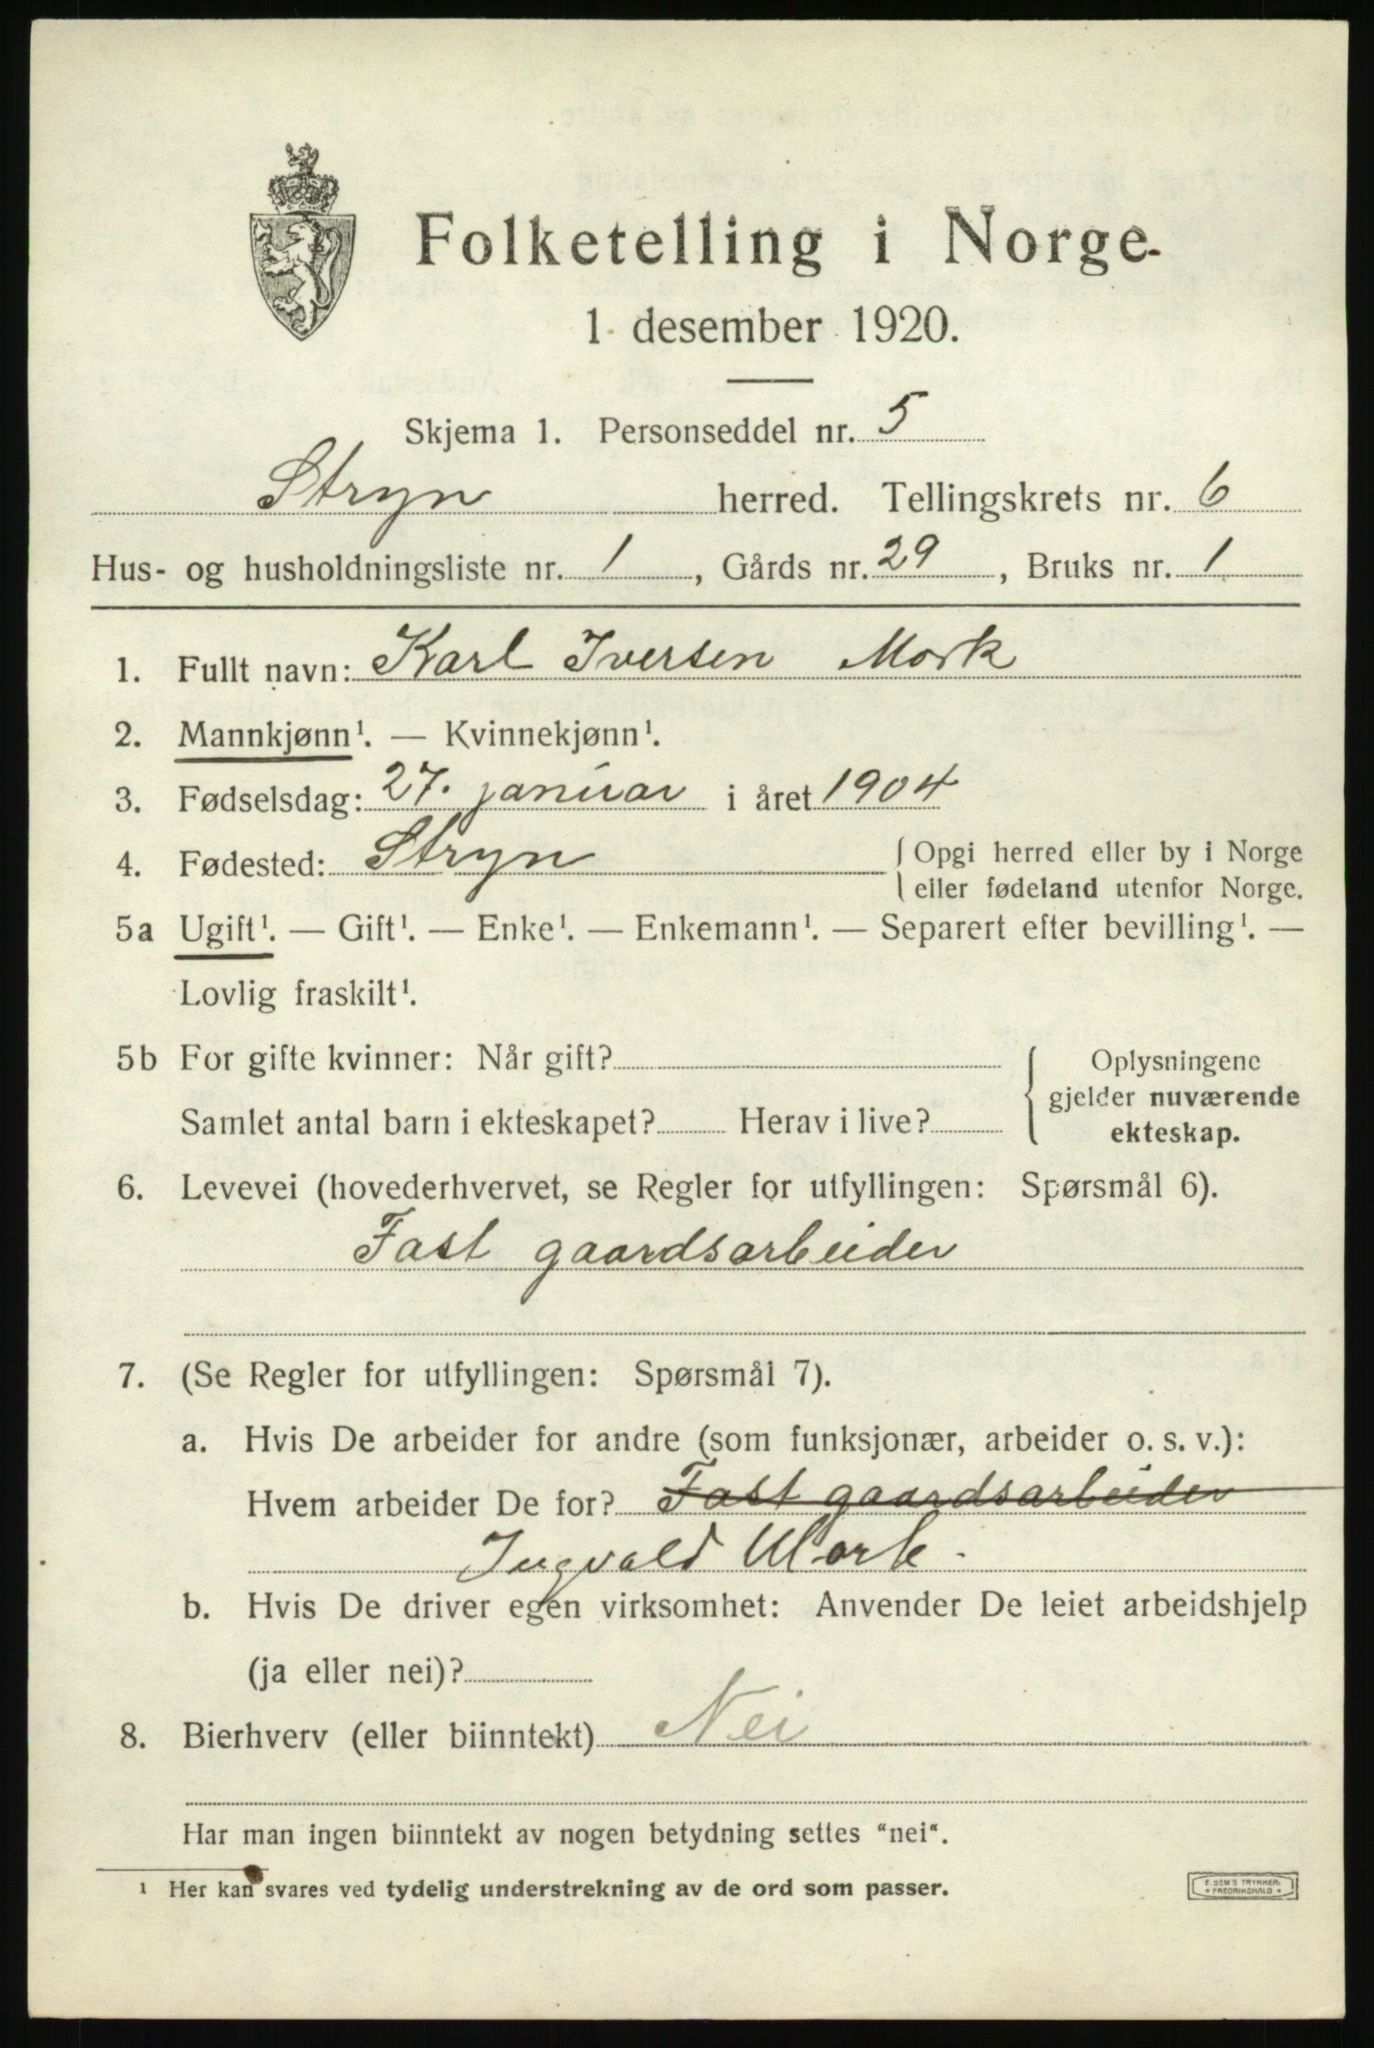 Folketelling i Norge
1 desember 1920.
Skjema 1. Personseddel nr. 5
Stryn herred. Tellingskrets nr. 6
Hus- og husholdningsliste nr. 1, Gårds nr. 29, Bruks nr. 1
1. Fullt navn: Karl Iversen Mork
2. Mannkjønn¹. — Kvinnekjønn¹.
3. Fødselsdag: 27. januar i året 1904
4. Fødested: Stryn { Opgi herred eller by i Norge
eller fødeland utenfor Norge.
5a Ugift¹. — Gift¹. — Enke¹. — Enkemann¹. — Separert efter bevilling¹. —
Lovlig fraskilt¹.
5b For gifte kvinner: Når gift? { Oplysningene
gjelder nuværende
Samlet antal barn i ekteskapet? Herav i live? ekteskap.
6. Levevei (hovederhvervet, se Regler for utfyllingen: Spørsmål 6).
Fast gaardsarbeider
7. (Se Regler for utfyllingen: Spørsmål 7).
a. Hvis De arbeider for andre (som funksjonær, arbeider o. s. v.):
Hvem arbeider De for? Fast gaardsarbeider
Ingvald Mork.
b. Hvis De driver egen virksomhet: Anvender De leiet arbeidshjelp
(ja eller nei)?
8. Bierhverv (eller biinntekt) Nei
Har man ingen biinntekt av nogen betydning settes "nei".
¹ Her kan svares ved tydelig understrekning av de ord som passer.
E. SEM'S TRYKKERI
* FREDRIKSHALD *